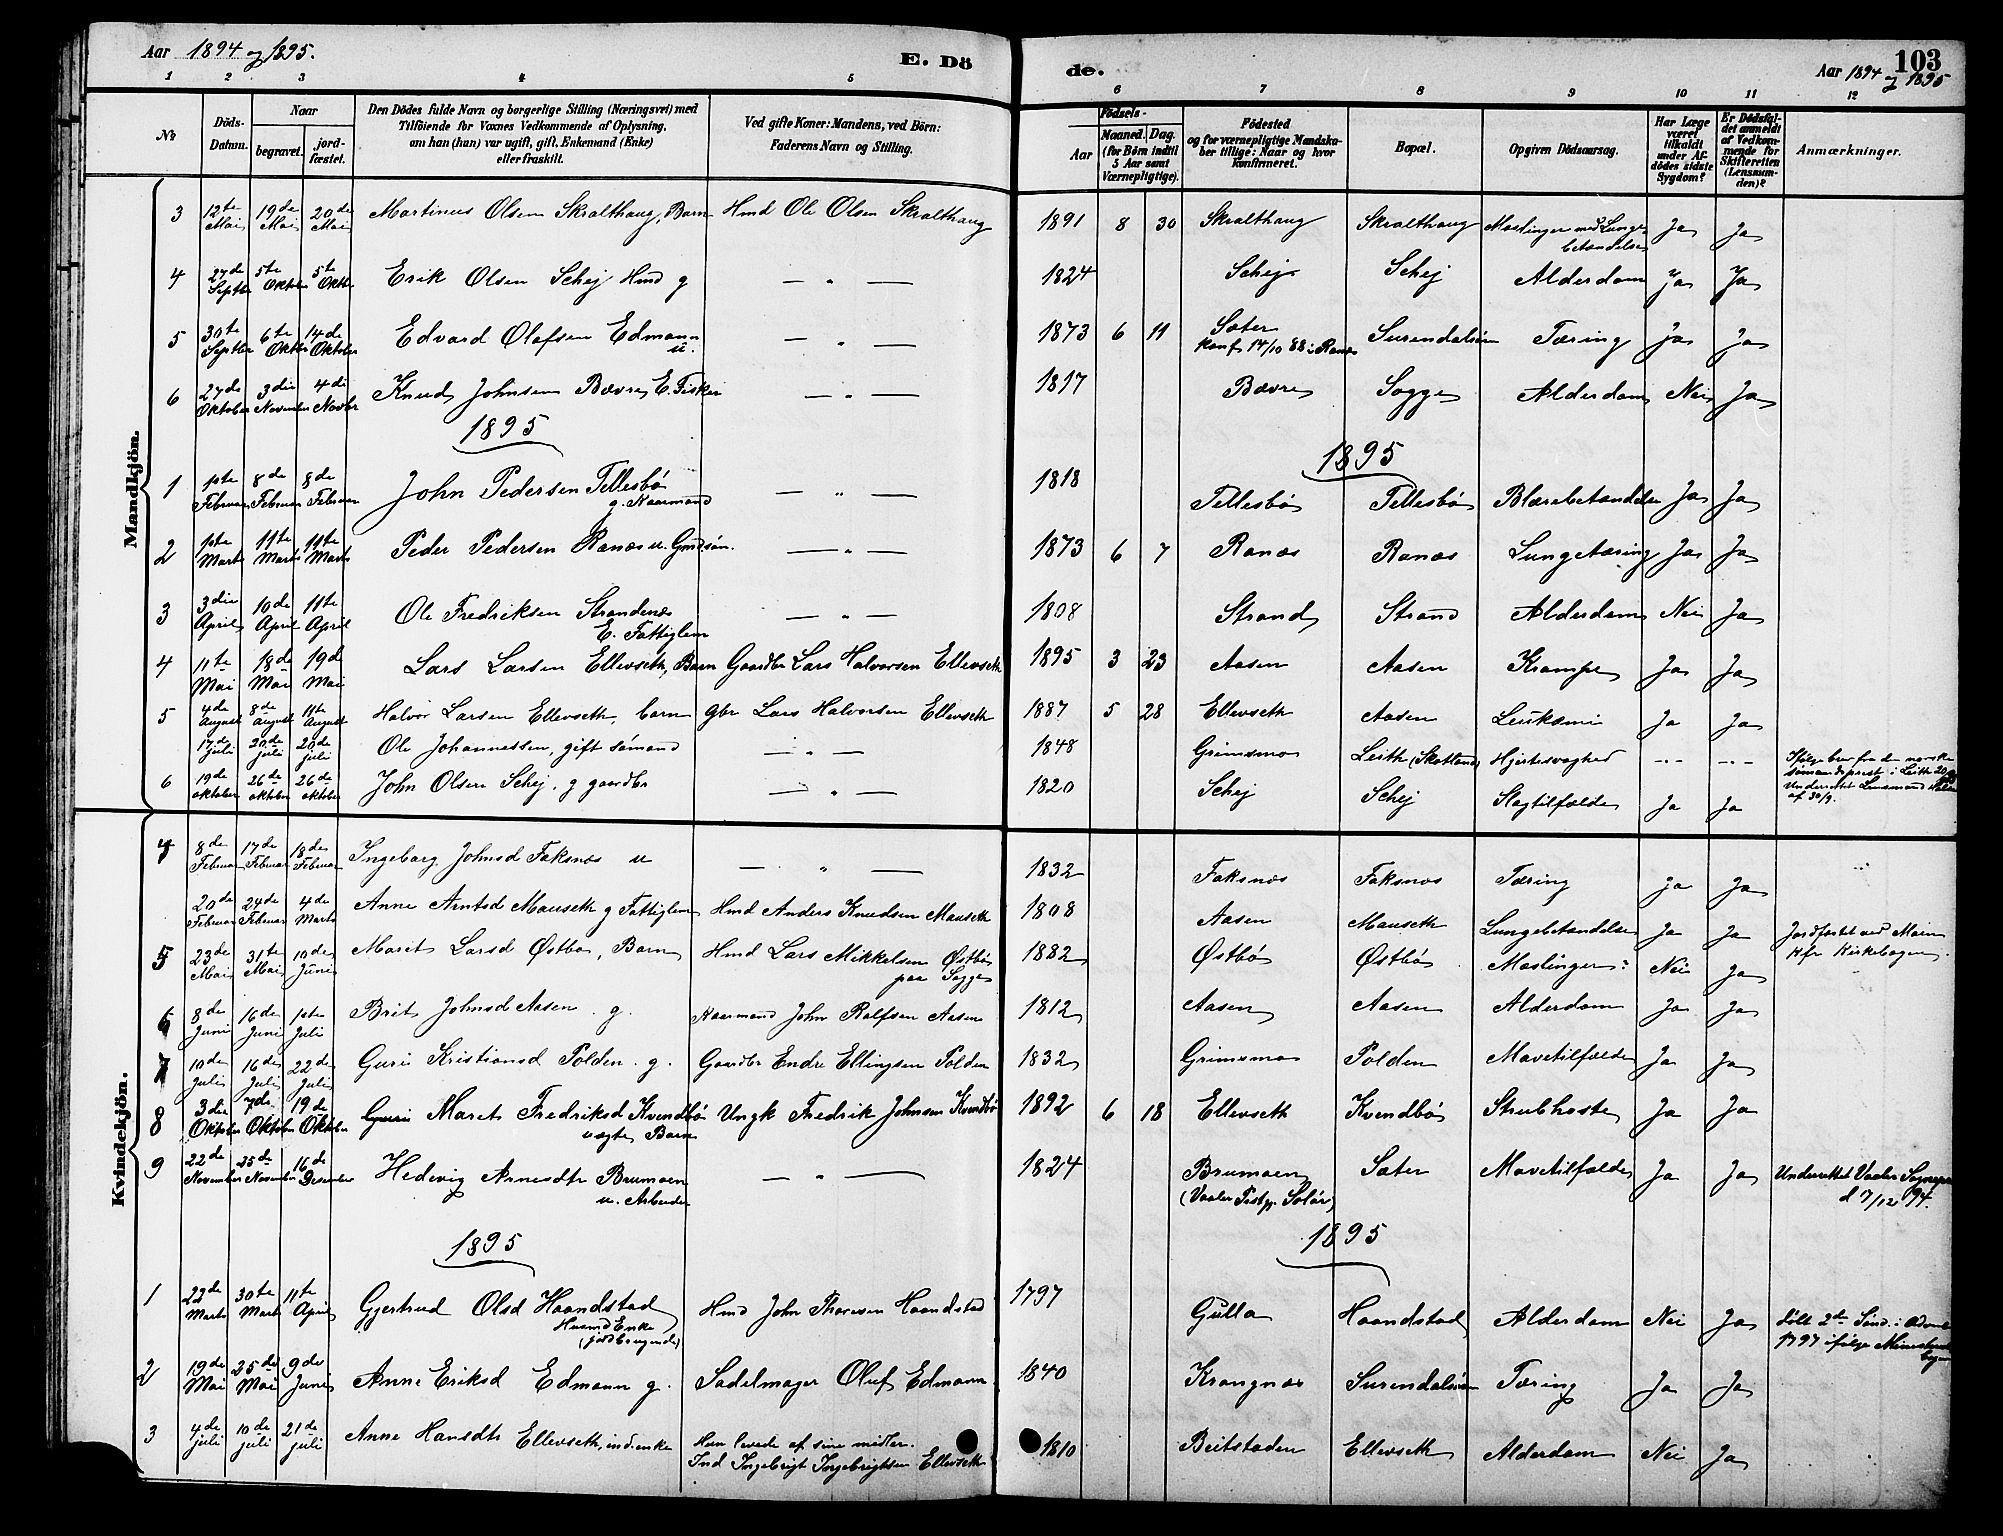 Aar 1894 og 1895.
E. Dö
de.
Aar 1894 og 1895
103
1 2 3 4 5 6 7 8 9 10 11 12
No
Döds-Datum.
Naar
begravet.
jord-fæstet.
Den Dödes fulde Navn og borgerlige Stilling (Næringsvei) med
Tilföiende for Voxnes Vedkommende af Oplysning,
om han (hun) var ugift, gift, Enkemand (Enke)
eller fraskilt.
Ved gifte Koner: Mandens, ved Börn:
Faderens Navn og Stilling.
Födsels-
Aar
Maaned. Dag.
(for Börn indtil
5 Aar samt
Værnepligtige).
Födested
og for værnepligtige Mandska-
ber tillige: Naar og hvor
konfirmeret.
Bopæl.
Opgiven Dödsaarsag.
Har Læge
været
tilkaldt
under Af-
dödes sidste
Sygdom?
Er Dödsfal-
det anmeldt
af Vedkom-
mende for
Skifteretten
(Lensman-
den)?
Anmærkninger.
Mandkjön.
3 12te Mai 19de Mai 20de Mai Martinus Olsen Skralthaug, Barn Hmd Ole Olsen Skralthaug 1891 8 30 Skralthaug Skralthaug Mæslinger med Lunge-betændelse Ja Ja
4 27de Septbr 5te Oktober 5te Oktbr Erik Olsen Schej Hmd g — " — 1824 Schej Schej Alderdom Ja Ja
5 30te Septbr 6te Oktbr 14de Oktober Edvard Olafsen Edmann u. — " — 1873 6 11 Sæter konf. 14/10 88 i Ranæs Surendalsøren Tæring Ja Ja
6 27de Oktober 3die November 4de Novbr Knud Johnsen Bævre E. Fisker — " — 1817 Bævre Sogge Alderdom Nei Ja
1895
1895
1 1ste Februar 8de Februar 8de Februar John Pedersen Tellesbø g. Kaarmand — " — 1818 Tellesbø Tellesbø Blærebetændelse Ja Ja
2 1ste Marts 11te Marts 11te Marts Peder Pedersen Ranæs u. Gmdsøn. — " — 1873 6 7 Ranæs Ranæs Lungetæring Ja Ja
3 3die April 10de April 11te April Ole Fredriksen Strandenæs E. Fattiglem — " — 1808 Strand Strand Alderdom Nei Ja
4 11te Mai 18de Mai 19de Mai Lars Larsen Ellevseth, Barn Gaardbr Lars Halvorsen Ellevseth 1895 3 23 Aasen Aasen Krampe Ja Ja
5 4de august 8de august 11te august Halvor Larsen Ellevseth, barn gbr Lars Halvorsen Ellevseth 1887 5 28 Ellevseth Aasen Leukæmi Ja Ja
17de juli 20de juli 20de juli Ole Johannessen, gift sømand — " — 1848 Grimsmo Leith (Skotland) Hjertesvaghed -"- -"- Ifølge brev fra den norske sømandsprest i Leith
Underrettet Lensmand af 30/9.
6 19de oktober 26de oktober 26de oktober John Olsen Schej, g gaardbr — " — 1820 Schej Schej Slagtilfælde Ja Ja
Kvindekjön.
4 8de Februar 17de Februar 18de Februar Ingeborg Johnsd Faksnæs u — " — 1832 Faksnæs Faksnæs Tæring Ja Ja
20de Februar 24de Februar 4de Marts Anne Arntsd Mauseth g Fattiglem Hmd Anders Knudsen Mauseth 1808 Aasen Mauseth Lungebetændelse Ja Ja Jordfæstet ved Moen kfr Kirkebogen.
5 23de Mai 31te Mai 10de Juni Maret Larsd Østbø, Barn Hmd Lars Mikkelsen Østbø paa Sogge 1882 Østbø Østbø Mæslinger? Nei Ja
6 8de Juni 16de Juni 1ste Juli Brit Johnsd Aasen g. Kaarmand John Rolfsen Aasen 1812 Aasen Aasen Alderdom Ja Ja
7 10de Juli 16de Juli 22de Juli Guri Kristiansd Polden g. Gaardbr Endre Ellingsen Polden 1832 Grimsmo Polden Mavetilfælde Ja Ja
8 3die Oktober 7de Oktober 19de Oktober Guri Maret Fredriksd Kvendbø uægte Barn Ungk Fredrik Johnsen Kvendbø 1892 6 18 Ellevseth Kvendbø Strubhoste Ja Ja
9 22de November 25de November 16de Desember Hedevig Arnesdtr Brumoen u. Arbeider — " — 1824 Brumoen (Vaaler Pstgj. Solør) Sæter Mavetilfælde Ja Ja Underrettet Vaaler Sognepr d 7/12 94.
1895
1895
1 22de Marts 30te Marts 11te April Gjertrud Olsd Haandstad Husmd Enke (jordbrugende) Hmd John Thoresen Haandstad 1797 Gulla Haandstad Alderdom Nei Ja døbt 2de Sønd. i Advent 1797 ifølge Ministerialbogen
2 19de Mai 25de Mai 9de Juni Anne Eriksd Edmann g. Sadelmager Oluf Edmann 1840 Krangnæs Surendalsøren Tæring Ja Ja
3 4de juli 10de juli 21de juli Anne Hansdtr Ellevseth, ind.enke Hun levede af sine midler.
Ind Ingebrigt Ingebrigtsen Ellevseth 1810 Beitstaden Ellevseth Alderdom Nei Ja